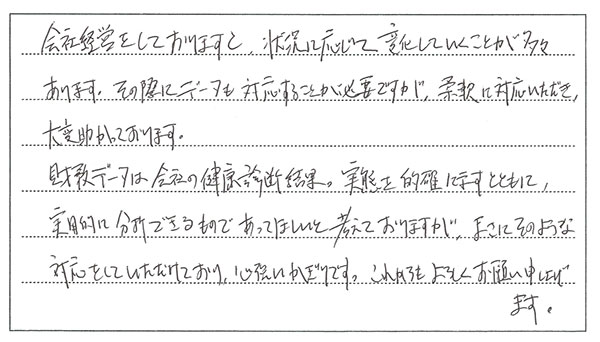 会社経営をしておりますと、状況に応じて変化していくことが多々
あります。その際にデータも対応することが必要ですが、柔軟に対応いただき、
大変助かっております。
財務データは会社の健康診断結果。実態を的確に示すとともに、
実用的に分析できるものであってほしいと考えておりますが、まさにそのような
対応をしていただけており、心強いかぎりです。これからもよろしくお願い申し上げ
ます。